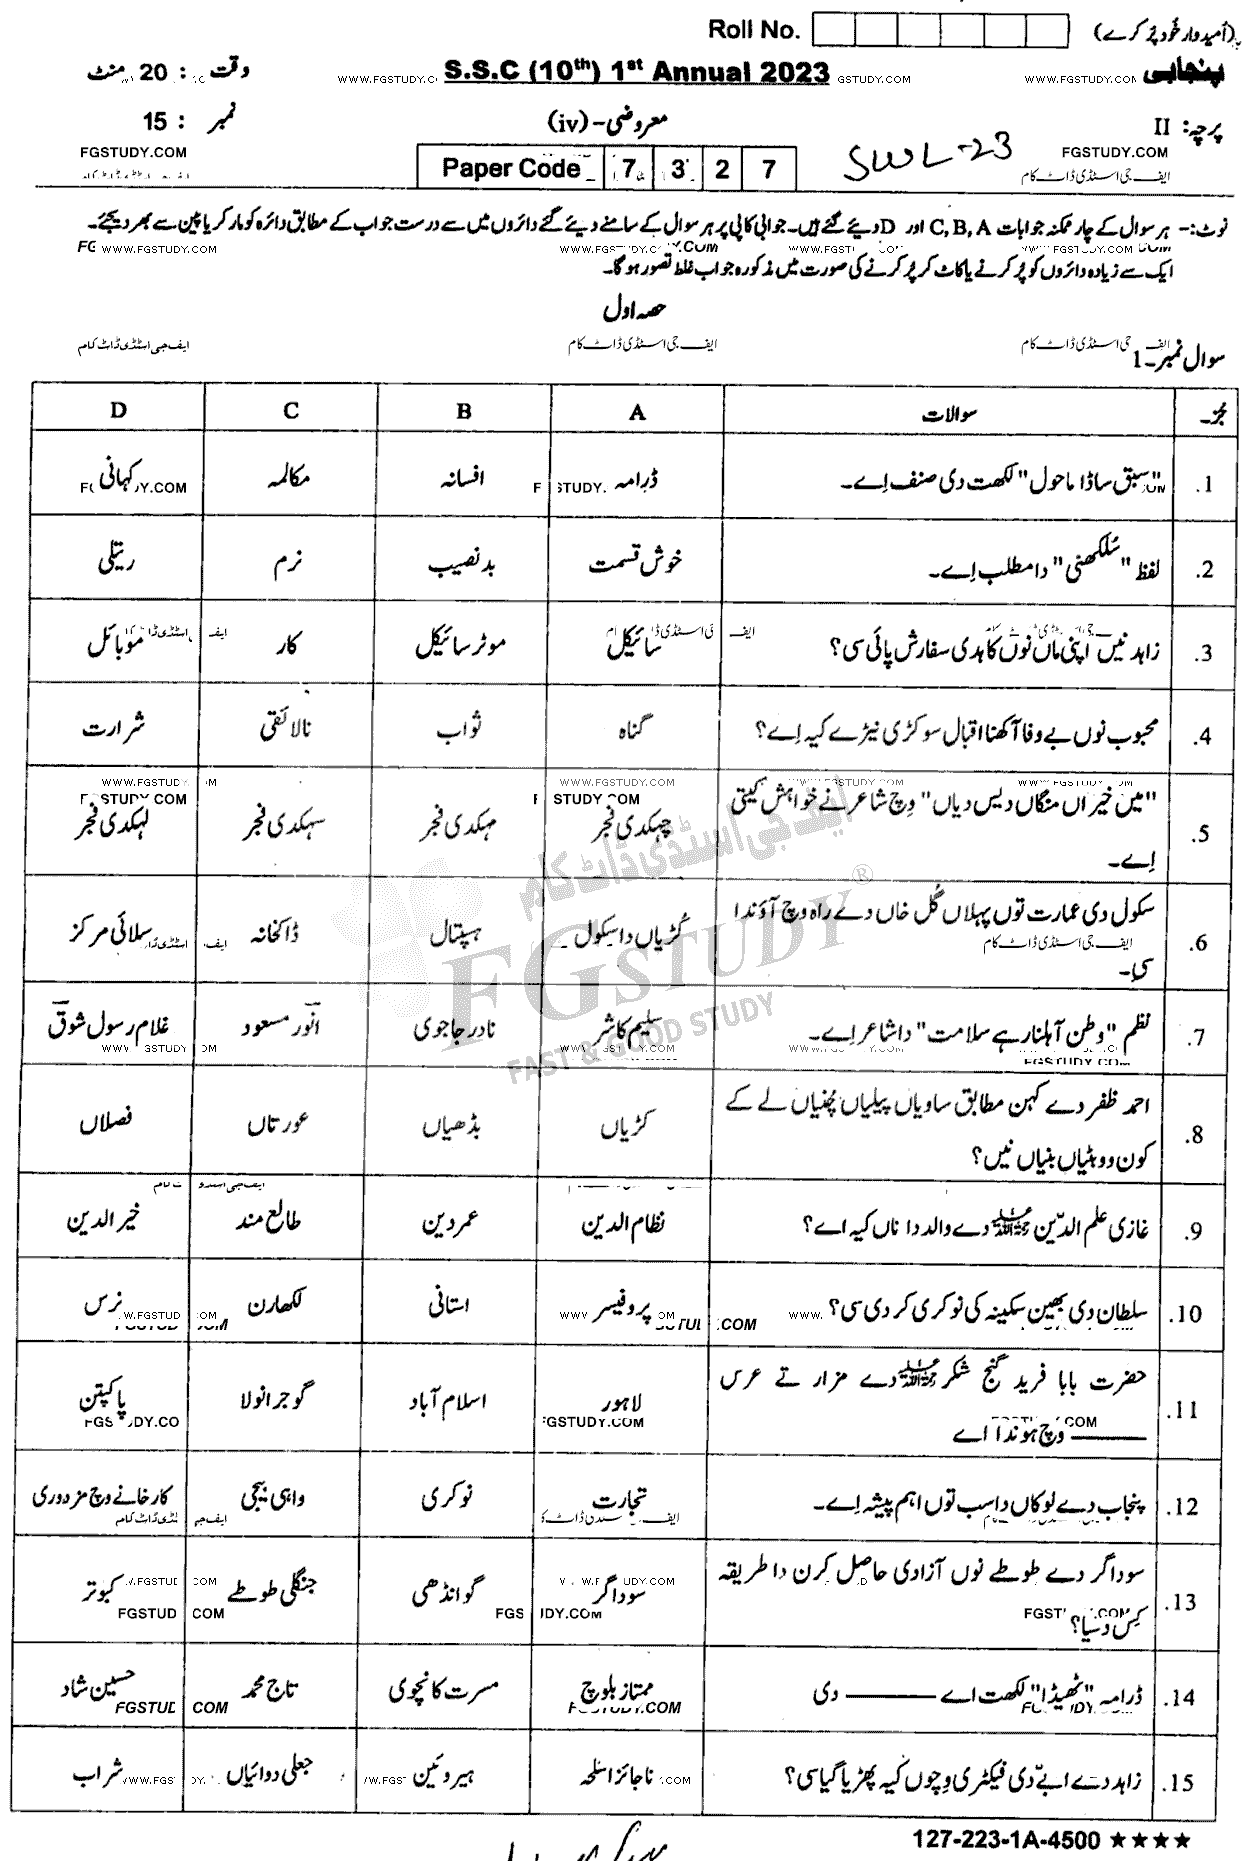 Roll No. (امیدوار خود پُر کرے)
پنجابی S.S.C (10th) 1st Annual 2023 وقت : 20 منٹ
WWW.FGSTUDY.COM
پرچہ: II معروضی-(iv) نمبر : 15
FGSTUDY.COM SWL-23 Paper Code 7 3 2 7 FGSTUDY.COM
ایف جی اسٹڈی ڈاٹ کام
نوٹ:- ہر سوال کے چار ممکنہ جوابات C,B,A اور D دیئے گئے ہیں۔ جوابی کاپی پر ہر سوال کے سامنے دیئے گئے دائروں میں سے درست جواب کے مطابق دائرہ کو مارکر یا پین سے بھر دیجئے۔
WWW.FGSTUDY.COM
ایک سے زیادہ دائروں کو پُر کرنے یا کاٹ کر پُر کرنے کی صورت میں مذکورہ جواب غلط تصور ہو گا۔
حصہ اول
ایف جی اسٹڈی ڈاٹ کام ایف جی اسٹڈی ڈاٹ کام ایف جی اسٹڈی ڈاٹ کام
سوال نمبر-1
جُز۔ سوالات A B C D
1. "سبق ساڈا ماحول" لکھت دی صنف اِے۔ ڈرامہ افسانہ مکالمہ کہانی
2. لفظ "سُلکھنی" دا مطلب اِے۔ خوش قسمت بد نصیب نرم ریتلی
3. زاہد نیں اپنی ماں نوں کاہدی سفارش پائی سی؟ سائیکل موٹر سائیکل کار موبائل
4. محبوب نوں بے وفا آکھنا اقبال سوکڑی نیڑے کیہ اِے؟ گناہ ثواب نالائقی شرارت
5. "میں خیراں منگاں دیس دیاں" وِچ شاعر نے خواہش کیتی
اِے۔ چہکدی فجر مہکدی فجر سہکدی فجر لہکدی فجر
6. سکول دی عمارت توں پہلاں گُل خاں دے راہ وِچ آؤندا
سی۔ کُڑیاں دا سکول ہسپتال ڈاکخانہ سلائی مرکز
7. نظم "وطن آہلنا رہے سلامت" دا شاعر اِے۔ سلیم کاشر نادر جاجوی انور مسعود غلام رسول شوق
8. احمد ظفر دے کہن مطابق ساویاں پیلیاں چُنیاں لے کے
کون ووہٹیاں بنیاں نیں؟ کڑیاں بڈھیاں عورتاں فصلاں
9. غازی علم الدّین دے والد دا ناں کیہ اے؟ نظام الدین عمر دین طالع مند خیر الدین
10. سلطان دی بھین سکینہ کی نوکری کردی سی؟ پروفیسر استانی لکھارن نرس
11. حضرت بابا فرید گنج شکر دے مزار تے عرس
——— وِچ ہوندا اے لاہور اسلام آباد گوجرانولا پاکپتن
12. پنجاب دے لوکاں دا سب توں اہم پیشہ اِے۔ تجارت نوکری واہی بیجی کارخانے وِچ مزدوری
13. سوداگر دے طوطے نوں آزادی حاصل کرن دا طریقہ
کِس دَسیا؟ سوداگر گوانڈھی جنگلی طوطے کبوتر
14. ڈرامہ "ٹھیڈا" لکھت اے ——— دی ممتاز بلوچ مسرت کلانچوی تاج محمد حسین شاد
15. زاہد دے ابےّ دی فیکٹری وِچوں کیہ پھڑیا گیا سی؟ ناجائز اسلحہ ہیروئین جعلی دوائیاں شراب
ایف جی اسٹڈی ڈاٹ کام
FGSTUDY®
FAST & GOOD STUDY
127-223-1A-4500 ★★★★